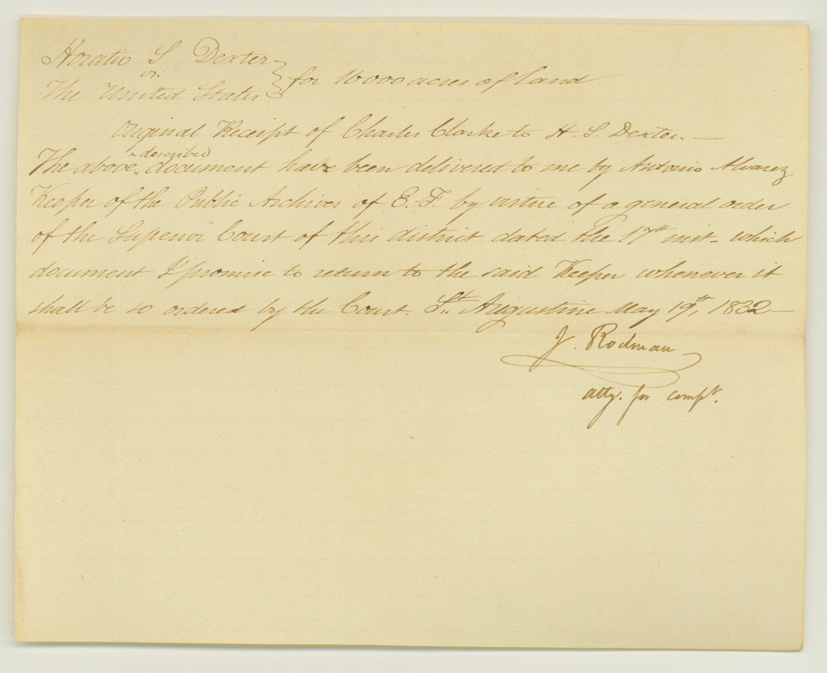 Horatio S Dexter
vs.
The United States } for 16000 acres of land
Original Receipt of Charles Clarke to H. S. Dexter. —
The above ^described document have been delivered to me by Antonio Alvarez
Keeper of the Public Archives of E. F. by virtue of a general order
of the Superior Court of this district dated the 17th inst. which
document I promise to return to the said Keeper whenever it
shall be so ordered by the Court. St. Augustine May 19th, 1832 —
J. Rodman
atty. for compt.